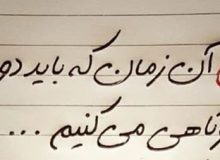 آن زمان که باید دو
تاهی می کنیم ...